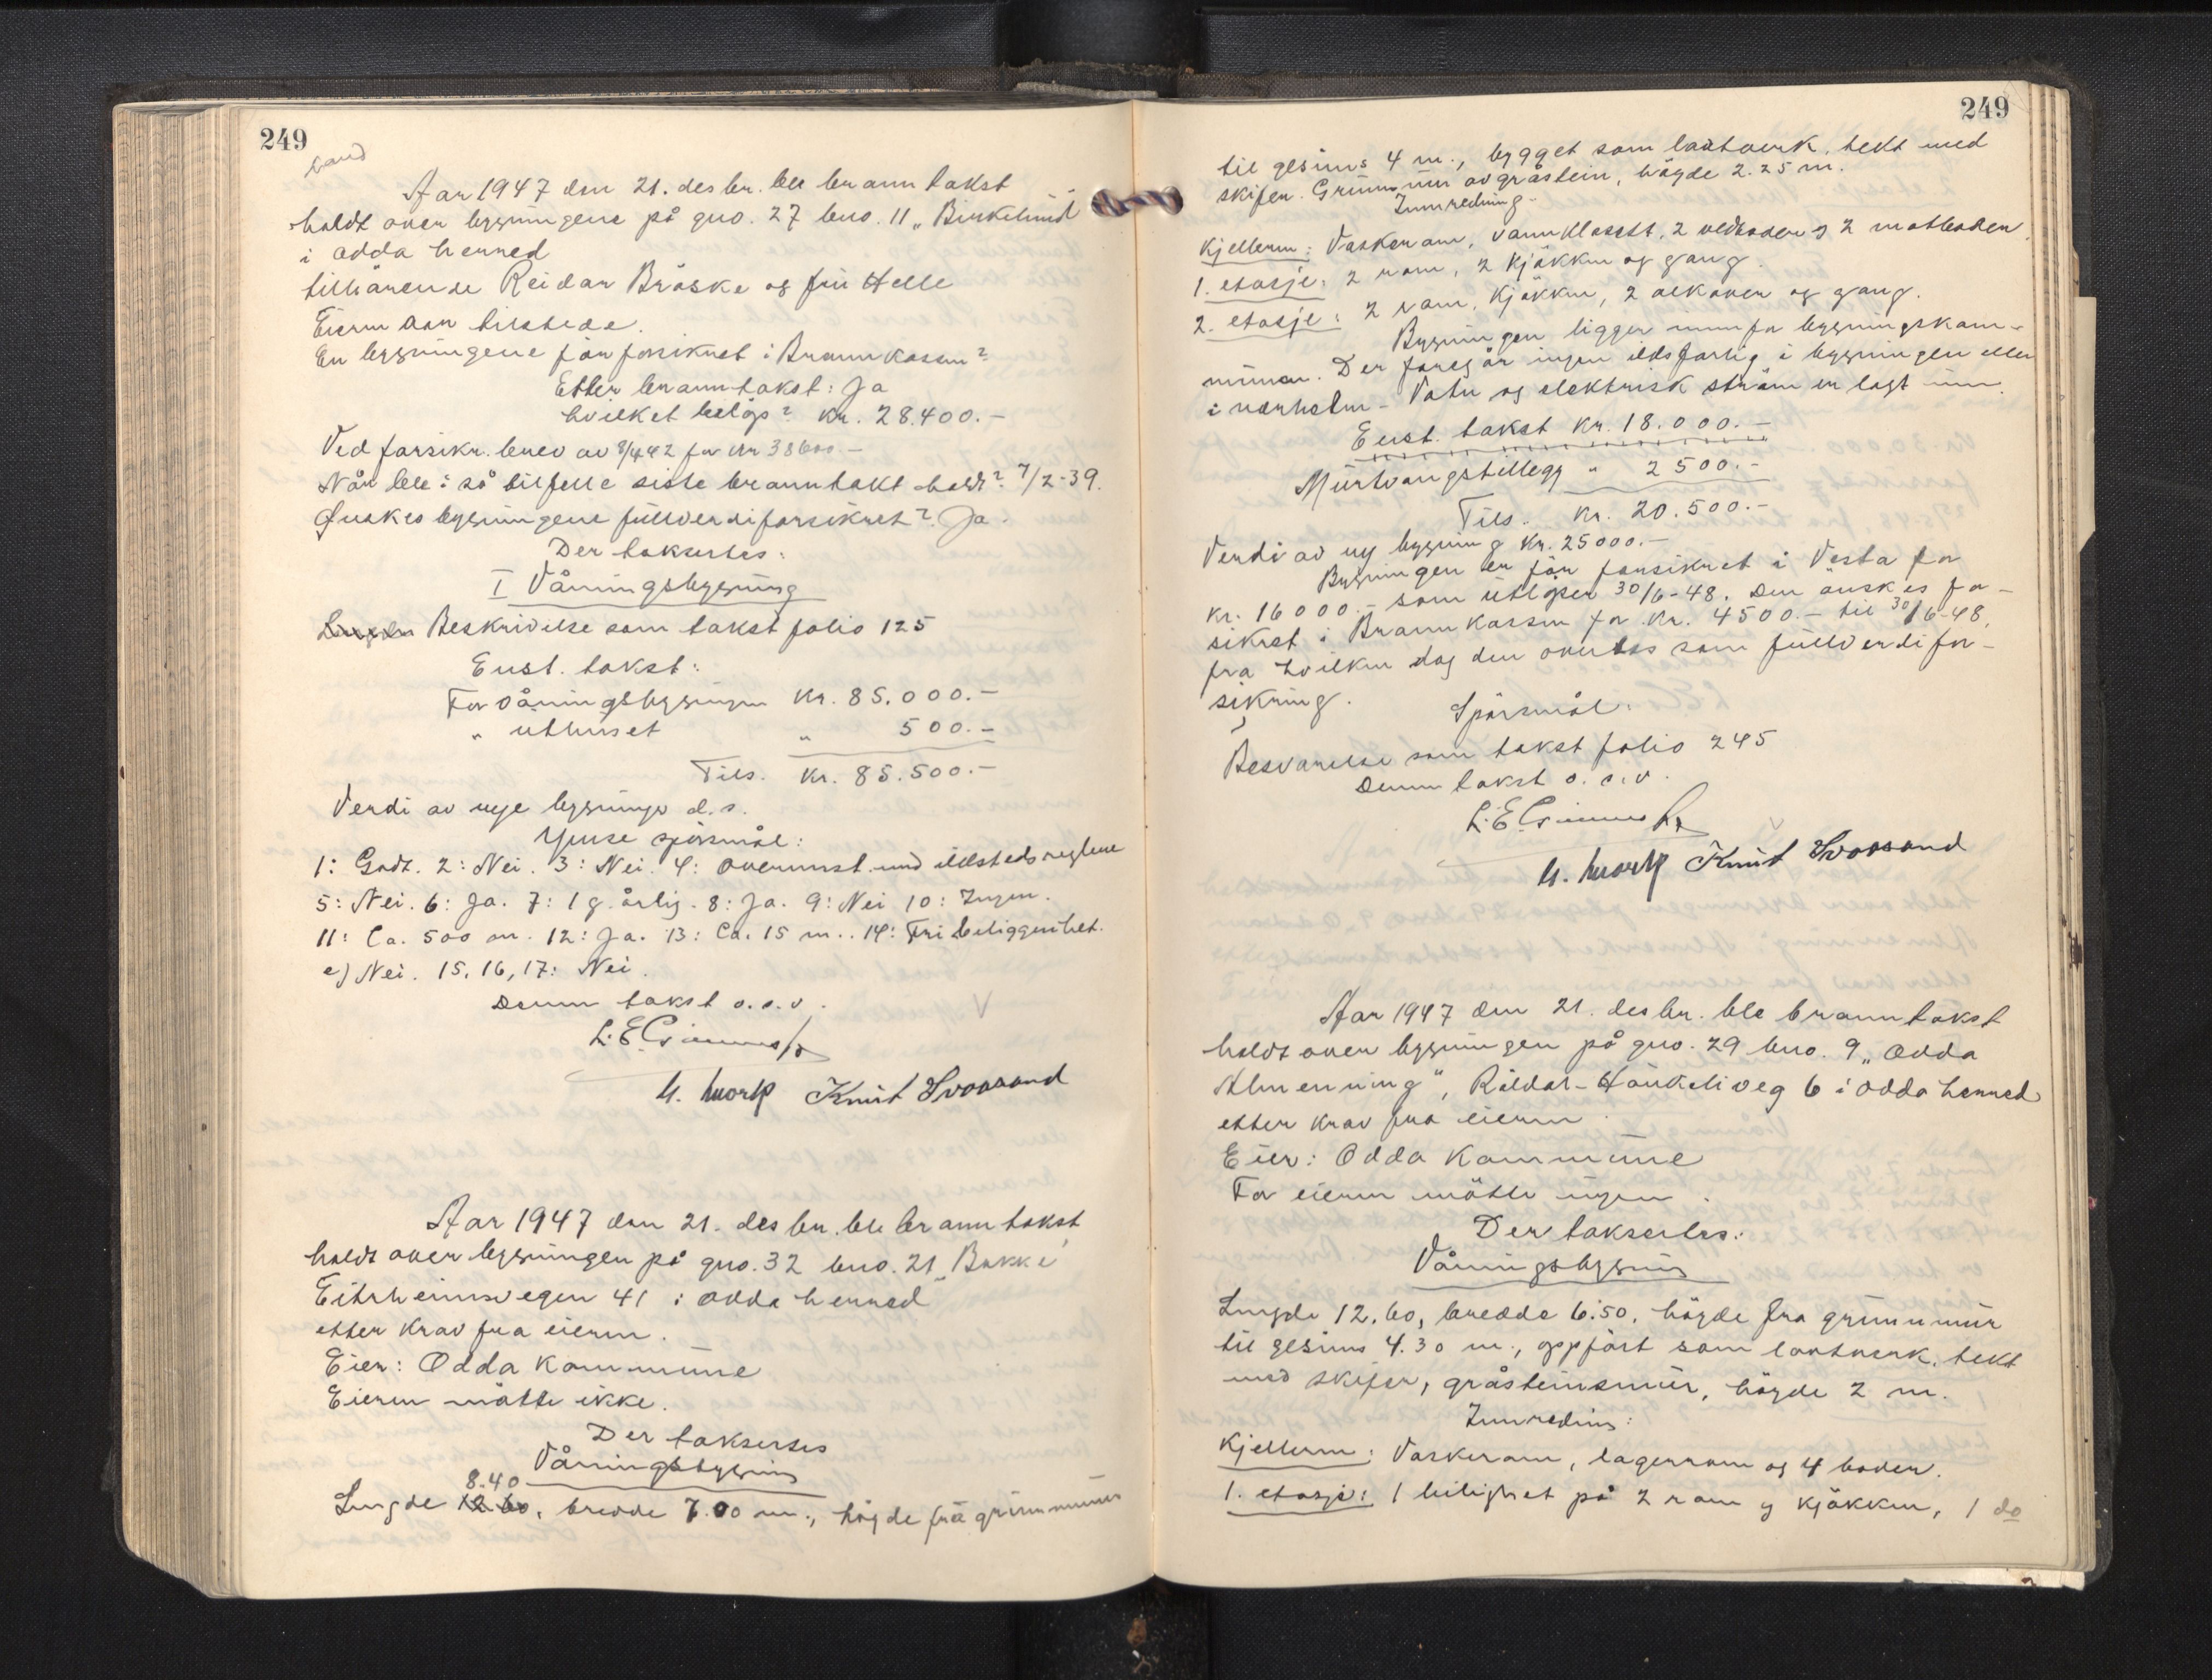 249
Aar 1947 den 21. desbr. ble branntakst
holdt over bygningene på gno. 27 bno. 11 „Birkelund
i Odda herred
tilhørende Reidar Bråske og fru Helle
Eieren var tilstede.
Er bygningene før forsikret i Brannkassen?
Etter branntakst: Ja
hvilket beløp? Kr. 28.400.-
Ved forsikr. brev av 8/4 42 for Kr 38600 -
Når ble i så tilfelle siste branntakt holdt? 7/2-39.
Ønskes bygningene fullverdiforsikret? Ja.
Der taksertes:
I Våningsbygning
Lengden Beskrivelse som takst folio 125
Enst. takst:
For våningsbygningen Kr. 85.000.-
" uthuset " 500.-
Tils. Kr. 85.500.-
Verdi av nye bygninger d.s.
Ymse spørsmål:
1: Godt. 2: Nei. 3: Nei. 4: Overenst. med ildstedsreglene
5: Nei. 6: Ja. 7: 1 g. årlig. 8: Ja. 9: Nei 10: Ingen.
11: Ca. 500 m. 12: Ja. 13: Ca. 15 m.. 14: Fri beliggenhet.
e) Nei. 15, 16, 17: Nei.
Denne takst o.s.v.
Knut
Aar 1947 den 21. desbr. ble branntakst
holdt over bygningen på gno. 32 bno. 21 „Bakke"
Eitrheimsvegen 41 i Odda herred
etter krav fra eieren.
Eier: Odda Kommune
Eieren møtte ikke.
Der taksertes
Våningsbygning
8.40
Lengde 12.60, bredde 7.00 m., høyde fra grunnmuren
249
til gesims 4 m., bygget som lastverk, tekt med
skifer. Grunnmur av gråstein, høyde 2.25 m.
Innredning.
Kjelleren: Vaskerom, vannklosett, 2 vedboder og 2 matboder.
1. etasje: 2 rom, 2 kjøkken og gang.
2. etasje: 2 rom, Kjøkken, 2 alkover og gang.
Bygningen ligger innenfor bygningskom-
munen. Der foregår ingen ildsfarlig i bygningen eller
i nærheten - Vatn og elektrisk strøm er lagt inn.
Enst. takst Kr. 18.000.-
Murtvangstillegg " 2500.-
Tils. Kr. 20.500.-
Verdi av ny bygning Kr. 25000.-
Bygningen er før forsikret i Vesta for
Kr. 16000.- som utløper 30/6-48. Den ønskes for-
sikret i Brannkassen for Kr. 4500.- til 30/6-48,
fra hvilken dag den overtas som fullverdifor-
sikring.
Spørsmål:
Besvarelse som takst folio 245
Denne takst o.s.v.
Knut
Aar 1947 den 21. desbr. ble branntakst
holdt over bygningen på gno. 29 bno. 9 „Odda
Almenning", Röldal-Haukeliveg 6 i Odda herred
etter krav fra eieren.
Eier: Odda Kommune
For eieren møtte ingen.
Der takserles:
Våningsbygning
Lengde 12.60, bredde 6.50, høyde fra grunnmur
til gesims 4.30 m., oppført som lastverk, tekt
med skifer, gråsteinsmur, høyde 2 m.
Innredning:
Kjelleren: Vaskerom, lagerrom og 4 boder.
1. etasje: 1 leilighet på 2 rom og kjøkken, 1 do